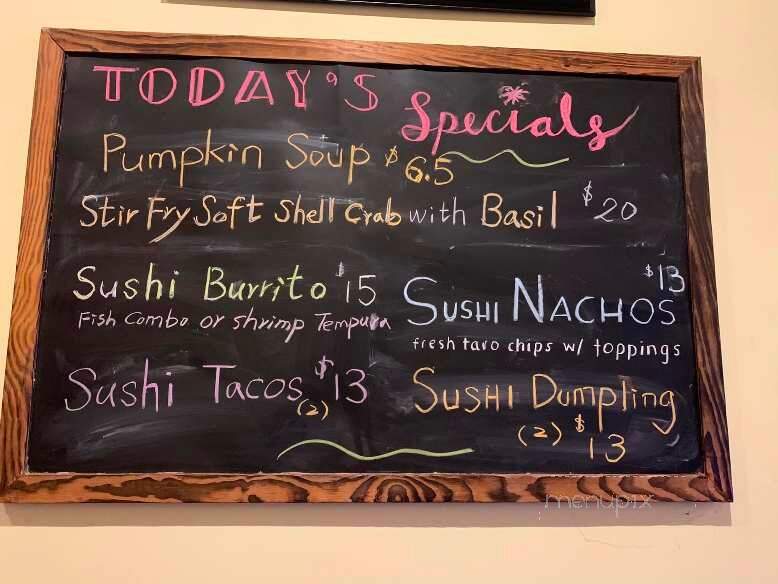 TODAY'S
Specials
Pumpkin Soup $6.5
Stir Fry Soft Shell Crab with Basil $20
Sushi Burrito $15
Fish Combo or shrimp Tempura
Sushi Tacos $13
(2)
$13
SUSHI NACHOS
fresh taro chips w/ toppings
SUSHI Dumpling
(2) $13
menupix